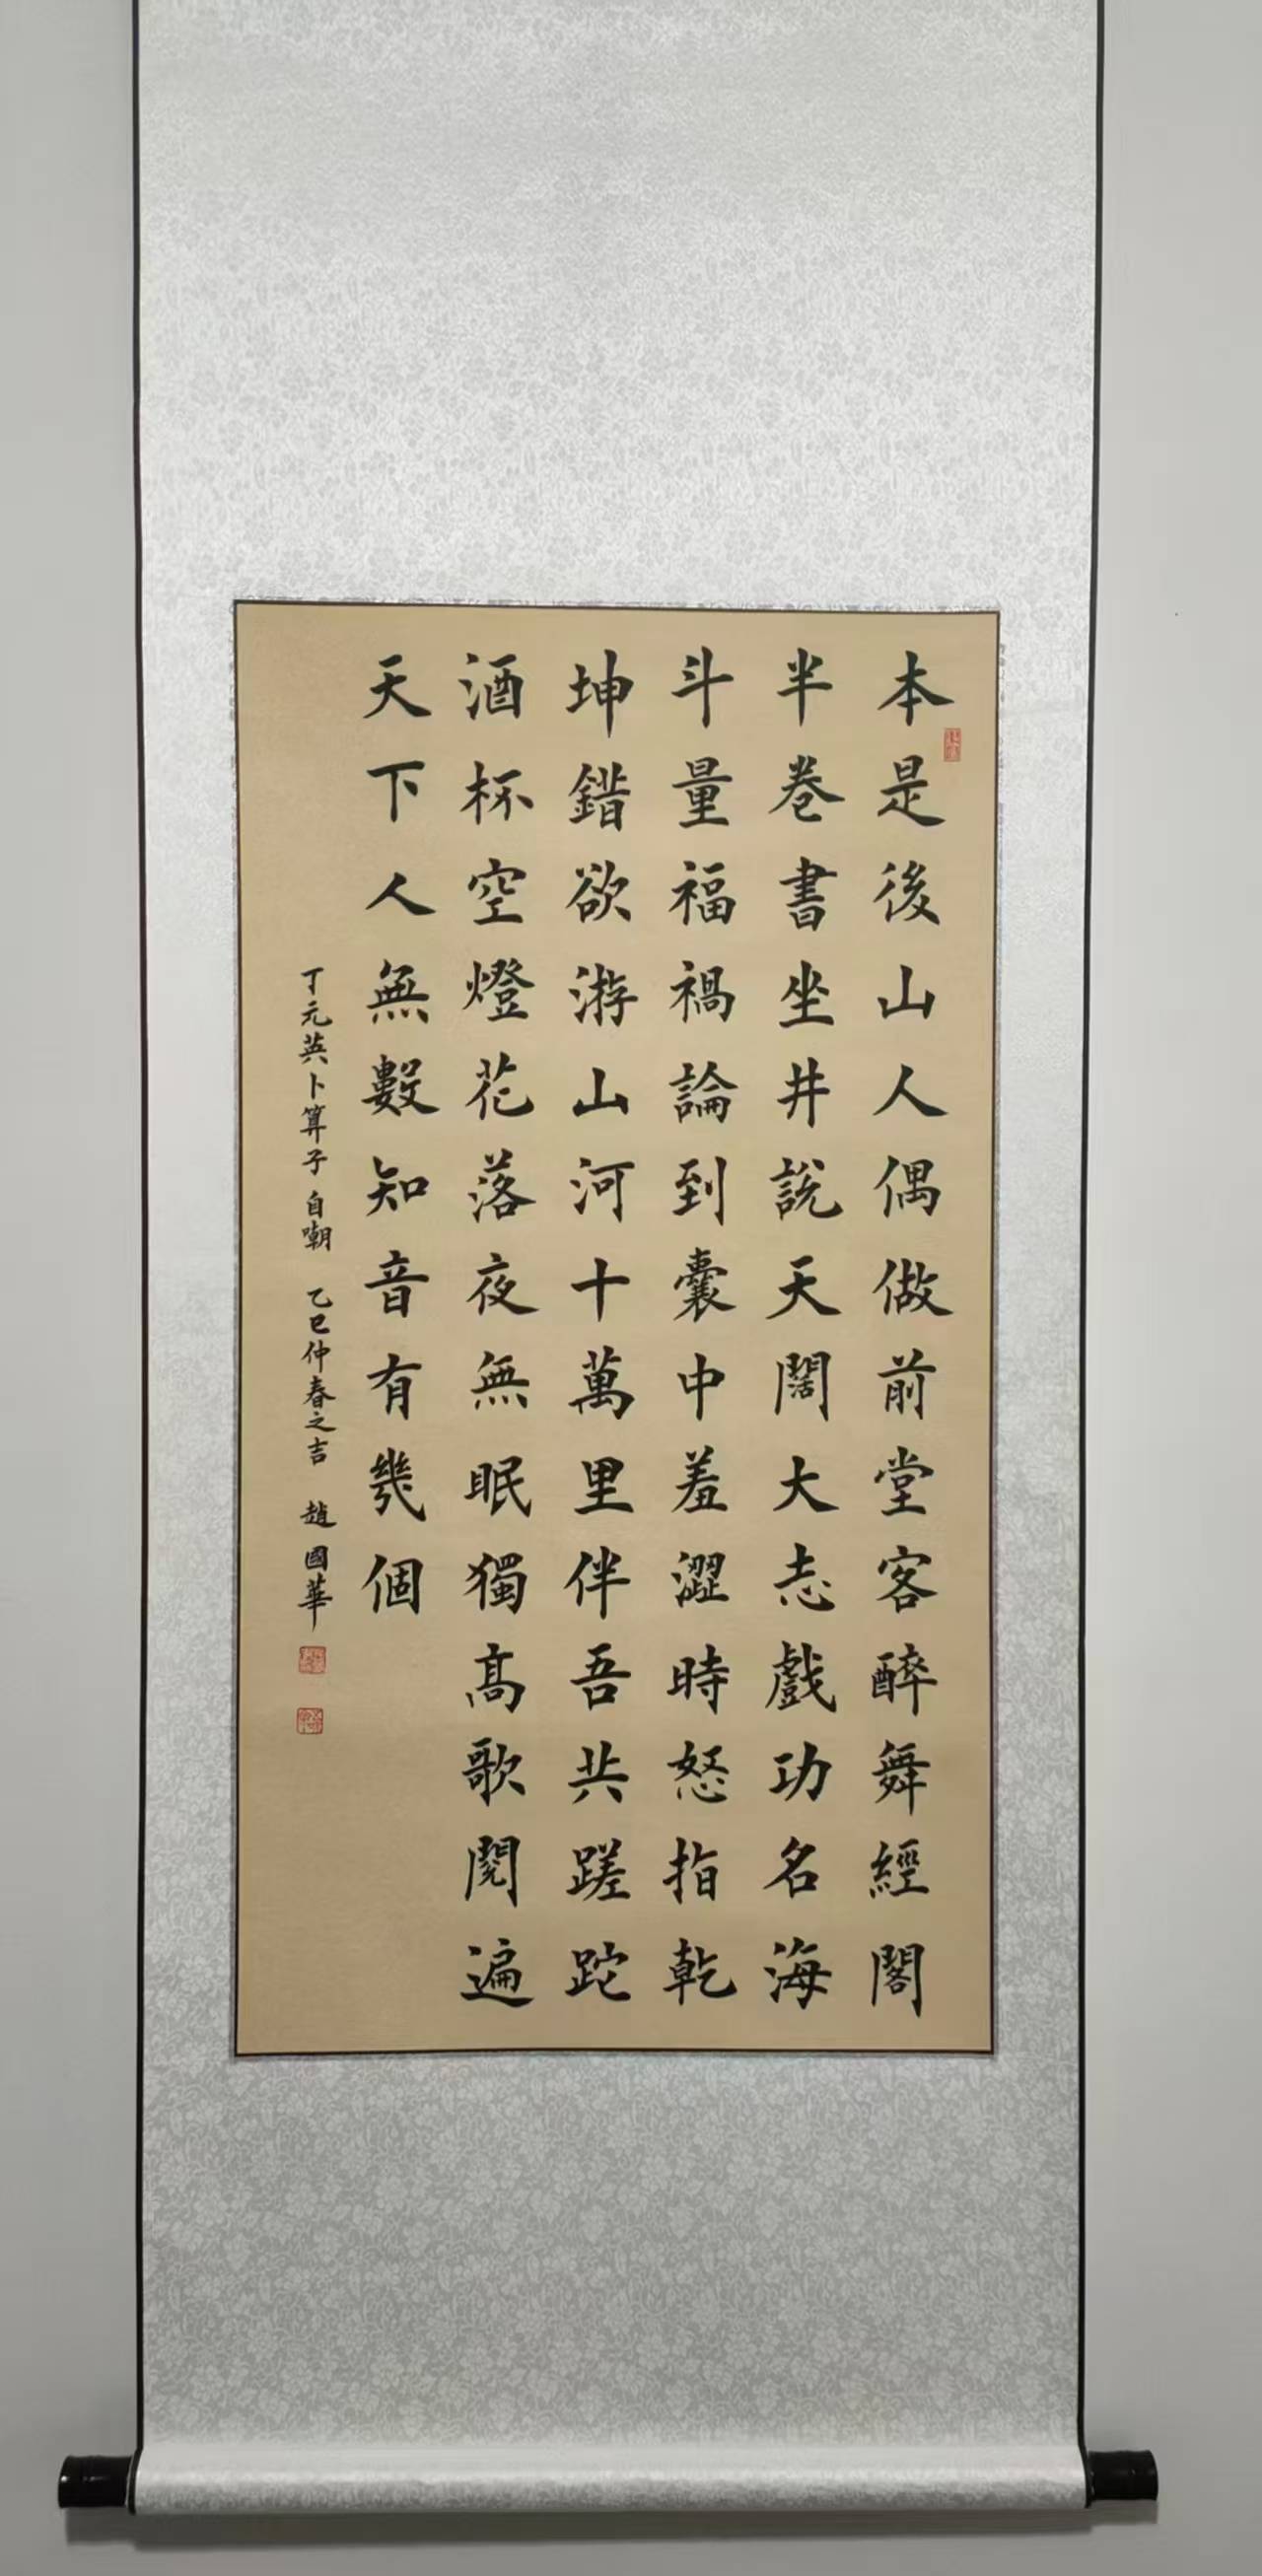 本是後山人偶做前堂客醉舞經閣
半卷書坐井說天闊大志戲功名海
斗量福禍論到囊中羞澀時怒指乾
坤錯欲游山河十萬里伴吾共蹉跎
酒杯空燈花落夜無眠獨高歌閱遍
天下人無數知音有幾個
丁元英卜算子自嘲 乙巳仲春之吉 趙國華